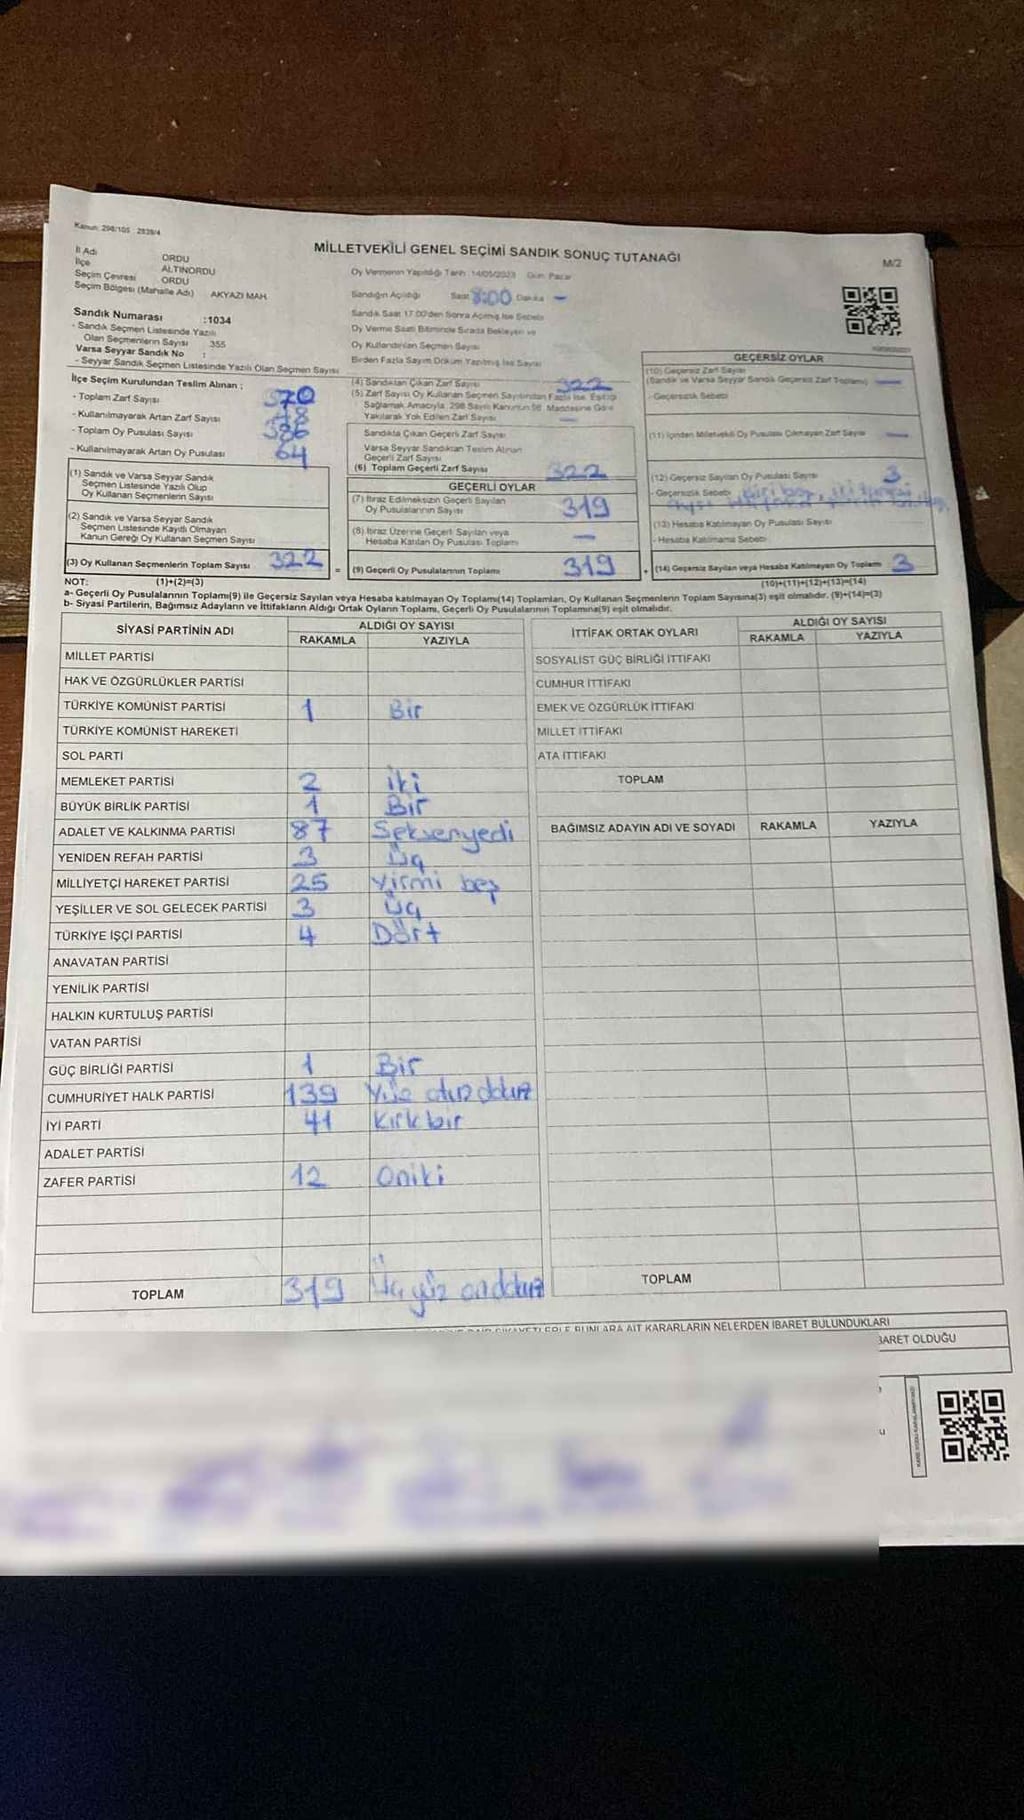 Kanun: 298/105 2839/4
MİLLETVEKİLİ GENEL SEÇİMİ SANDIK SONUÇ TUTANAĞI
M/2
İl Adı ORDU
İlçe ALTINORDU
Seçim Çevresi ORDU
Seçim Bölgesi (Mahalle Adı) AKYAZI MAH.
Oy Vermenin Yapıldığı Tarih :14/05/2023 Gün: Pazar
Sandığın Açıldığı Saat 8:00 Dakika -
Sandık Saat 17:00'den Sonra Açılmış İse Sebebi
Oy Verme Saati Bitiminde Sırada Bekleyen ve
Oy Kullandırılan Seçmen Sayısı
Birden Fazla Sayım Döküm Yapılmış İse Sayısı
Sandık Numarası :1034
- Sandık Seçmen Listesinde Yazılı
Olan Seçmenlerin Sayısı 355
Varsa Seyyar Sandık No :
- Seyyar Sandık Seçmen Listesinde Yazılı Olan Seçmen Sayısı
İlçe Seçim Kurulundan Teslim Alınan ;
- Toplam Zarf Sayısı 370
- Kullanılmayarak Artan Zarf Sayısı
- Toplam Oy Pusulası Sayısı 386
- Kullanılmayarak Artan Oy Pusulası 64
(1) Sandık ve Varsa Seyyar Sandık
Seçmen Listesinde Yazılı Olup
Oy Kullanan Seçmenlerin Sayısı
(2) Sandık ve Varsa Seyyar Sandık
Seçmen Listesinde Kayıtlı Olmayan
Kanun Gereği Oy Kullanan Seçmen Sayısı
(3) Oy Kullanan Seçmenlerin Toplam Sayısı 322 =
(4) Sandıktan Çıkan Zarf Sayısı 322
(5) Zarf Sayısı Oy Kullanan Seçmen Sayısından Fazla İse, Eşitliği
Sağlamak Amacıyla, 298 Sayılı Kanunun 98. Maddesine Göre
Yakılarak Yok Edilen Zarf Sayısı -
Sandıkta Çıkan Geçerli Zarf Sayısı
Varsa Seyyar Sandıktan Teslim Alınan
Geçerli Zarf Sayısı
(6) Toplam Geçerli Zarf Sayısı 322
GEÇERLİ OYLAR
(7) İtiraz Edilmeksizin Geçerli Sayılan
Oy Pusulalarının Sayısı 319
(8) İtiraz Üzerine Geçerli Sayılan veya
Hesaba Katılan Oy Pusulası Toplamı -
(9) Geçerli Oy Pusulalarının Toplamı 319 +
GEÇERSİZ OYLAR
(10) Geçersiz Zarf Sayısı
(Sandık ve Varsa Seyyar Sandık Geçersiz Zarf Toplamı) -
- Geçersizlik Sebebi
(11) İçinden Milletvekili Oy Pusulası Çıkmayan Zarf Sayısı -
(12) Geçersiz Sayılan Oy Pusulası Sayısı 3
- Geçersizlik Sebebi
(13) Hesaba Katılmayan Oy Pusulası Sayısı
- Hesaba Katılmama Sebebi
(14) Geçersiz Sayılan veya Hesaba Katılmayan Oy Toplamı 3
NOT: (1)+(2)=(3) (10)+(11)+(12)+(13)=(14)
a- Geçerli Oy Pusulalarının Toplamı(9) ile Geçersiz Sayılan veya Hesaba katılmayan Oy Toplamı(14) Toplamları, Oy Kullanan Seçmenlerin Toplam Sayısına(3) eşit olmalıdır. (9)+(14)=(3)
b- Siyasi Partilerin, Bağımsız Adayların ve İttifakların Aldığı Ortak Oyların Toplamı, Geçerli Oy Pusulalarının Toplamına(9) eşit olmalıdır.
SİYASİ PARTİNİN ADI ALDIĞI OY SAYISI
RAKAMLA YAZIYLA
MİLLET PARTİSİ
HAK VE ÖZGÜRLÜKLER PARTİSİ
TÜRKİYE KOMÜNİST PARTİSİ 1 Bir
TÜRKİYE KOMÜNİST HAREKETİ
SOL PARTİ
MEMLEKET PARTİSİ 2 İki
BÜYÜK BİRLİK PARTİSİ 1 Bir
ADALET VE KALKINMA PARTİSİ 87 Seksenyedi
YENİDEN REFAH PARTİSİ 3 Üç
MİLLİYETÇİ HAREKET PARTİSİ 25 Yirmi beş
YEŞİLLER VE SOL GELECEK PARTİSİ 3 Üç
TÜRKİYE İŞÇİ PARTİSİ 4 Dört
ANAVATAN PARTİSİ
YENİLİK PARTİSİ
HALKIN KURTULUŞ PARTİSİ
VATAN PARTİSİ
GÜÇ BİRLİĞİ PARTİSİ 1 Bir
CUMHURİYET HALK PARTİSİ 139 Yüz otuz dokuz
İYİ PARTİ 41 Kırk bir
ADALET PARTİSİ
ZAFER PARTİSİ 12 Oniki
TOPLAM 319 Üç yüz ondokuz
İTTİFAK ORTAK OYLARI ALDIĞI OY SAYISI
RAKAMLA YAZIYLA
SOSYALİST GÜÇ BİRLİĞİ İTTİFAKI
CUMHUR İTTİFAKI
EMEK VE ÖZGÜRLÜK İTTİFAKI
MİLLET İTTİFAKI
ATA İTTİFAKI
TOPLAM
BAĞIMSIZ ADAYIN ADI VE SOYADI RAKAMLA YAZIYLA
TOPLAM
BUNLARA AİT KARARLARIN NELERDEN İBARET BULUNDUKLARI
BARET OLDUĞU